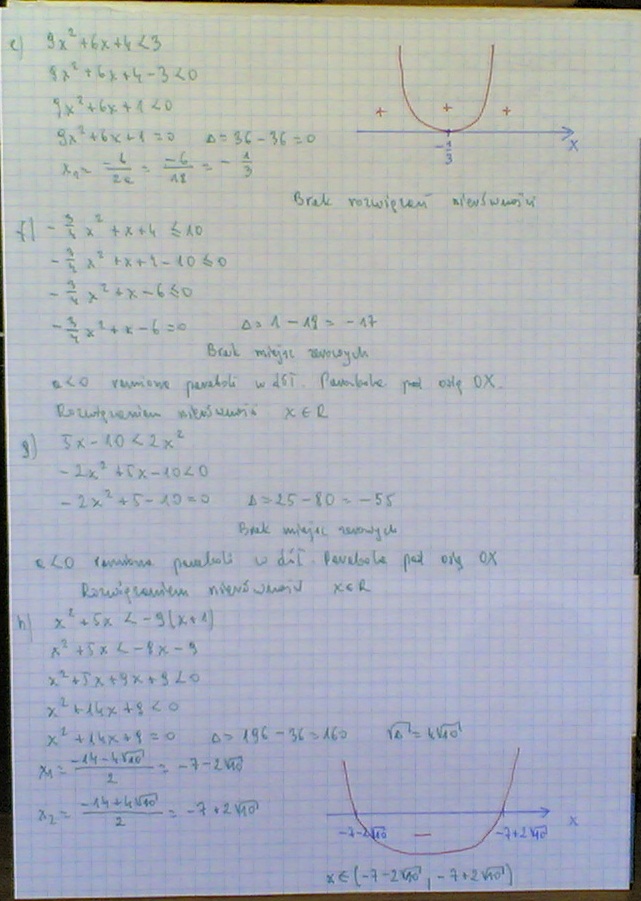 e) 9x² + 6x + 4 < 3
9x² + 6x + 4 - 3 < 0
9x² + 6x + 1 < 0
9x² + 6x + 1 = 0 Δ = 36 - 36 = 0
x₁ = -b/2a = -6/18 = -1/3
+ + +
-1/3
x
Brak rozwiązań nierówności
f) -3/4 x² + x + 4 ≤ 10
-3/4 x² + x + 4 - 10 ≤ 0
-3/4 x² + x - 6 ≤ 0
-3/4 x² + x - 6 = 0 Δ = 1 - 18 = -17
Brak miejsc zerowych
a < 0 ramiona paraboli w dół. Parabola pod osią OX.
Rozwiązaniem nierówności x ∈ R
g) 5x - 10 < 2x²
-2x² + 5x - 10 < 0
-2x² + 5 - 10 = 0 Δ = 25 - 80 = -55
Brak miejsc zerowych
a < 0 ramiona paraboli w dół. Parabola pod osią OX
Rozwiązaniem nierówności x ∈ R
h) x² + 5x < -9(x + 1)
x² + 5x < -9x - 9
x² + 5x + 9x + 9 < 0
x² + 14x + 9 < 0
x² + 14x + 9 = 0 Δ = 196 - 36 = 160 √Δ = 4√10
x₁ = (-14 - 4√10)/2 = -7 - 2√10
x₂ = (-14 + 4√10)/2 = -7 + 2√10
x
-7 - 2√10 — -7 + 2√10
x ∈ (-7 - 2√10, -7 + 2√10)